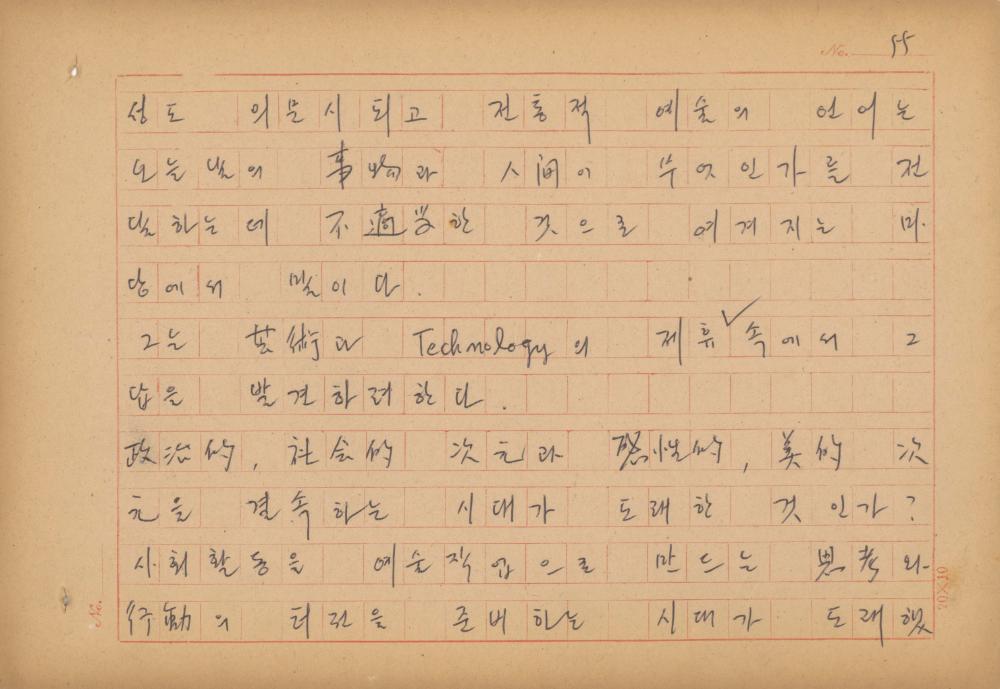 No. 55
성도 의문시 되고 전통적 예술의 언어는
오늘날의 事物과 人間이 무엇인가를 전
달하는데 不適当한 것으로 여겨지는 마
당에서 말이다.
그는 芸術과 Technology의 제휴✓속에서 그
답을 발견하려한다.
政治的, 社会的 次元과 感性的, 美的 次
元을 결속하는 시대가 도래한 것인가?
사회활동을 예술작업으로 만드는 思考와
行動의 터전을 준비하는 시대가 도래했
No.
20×10